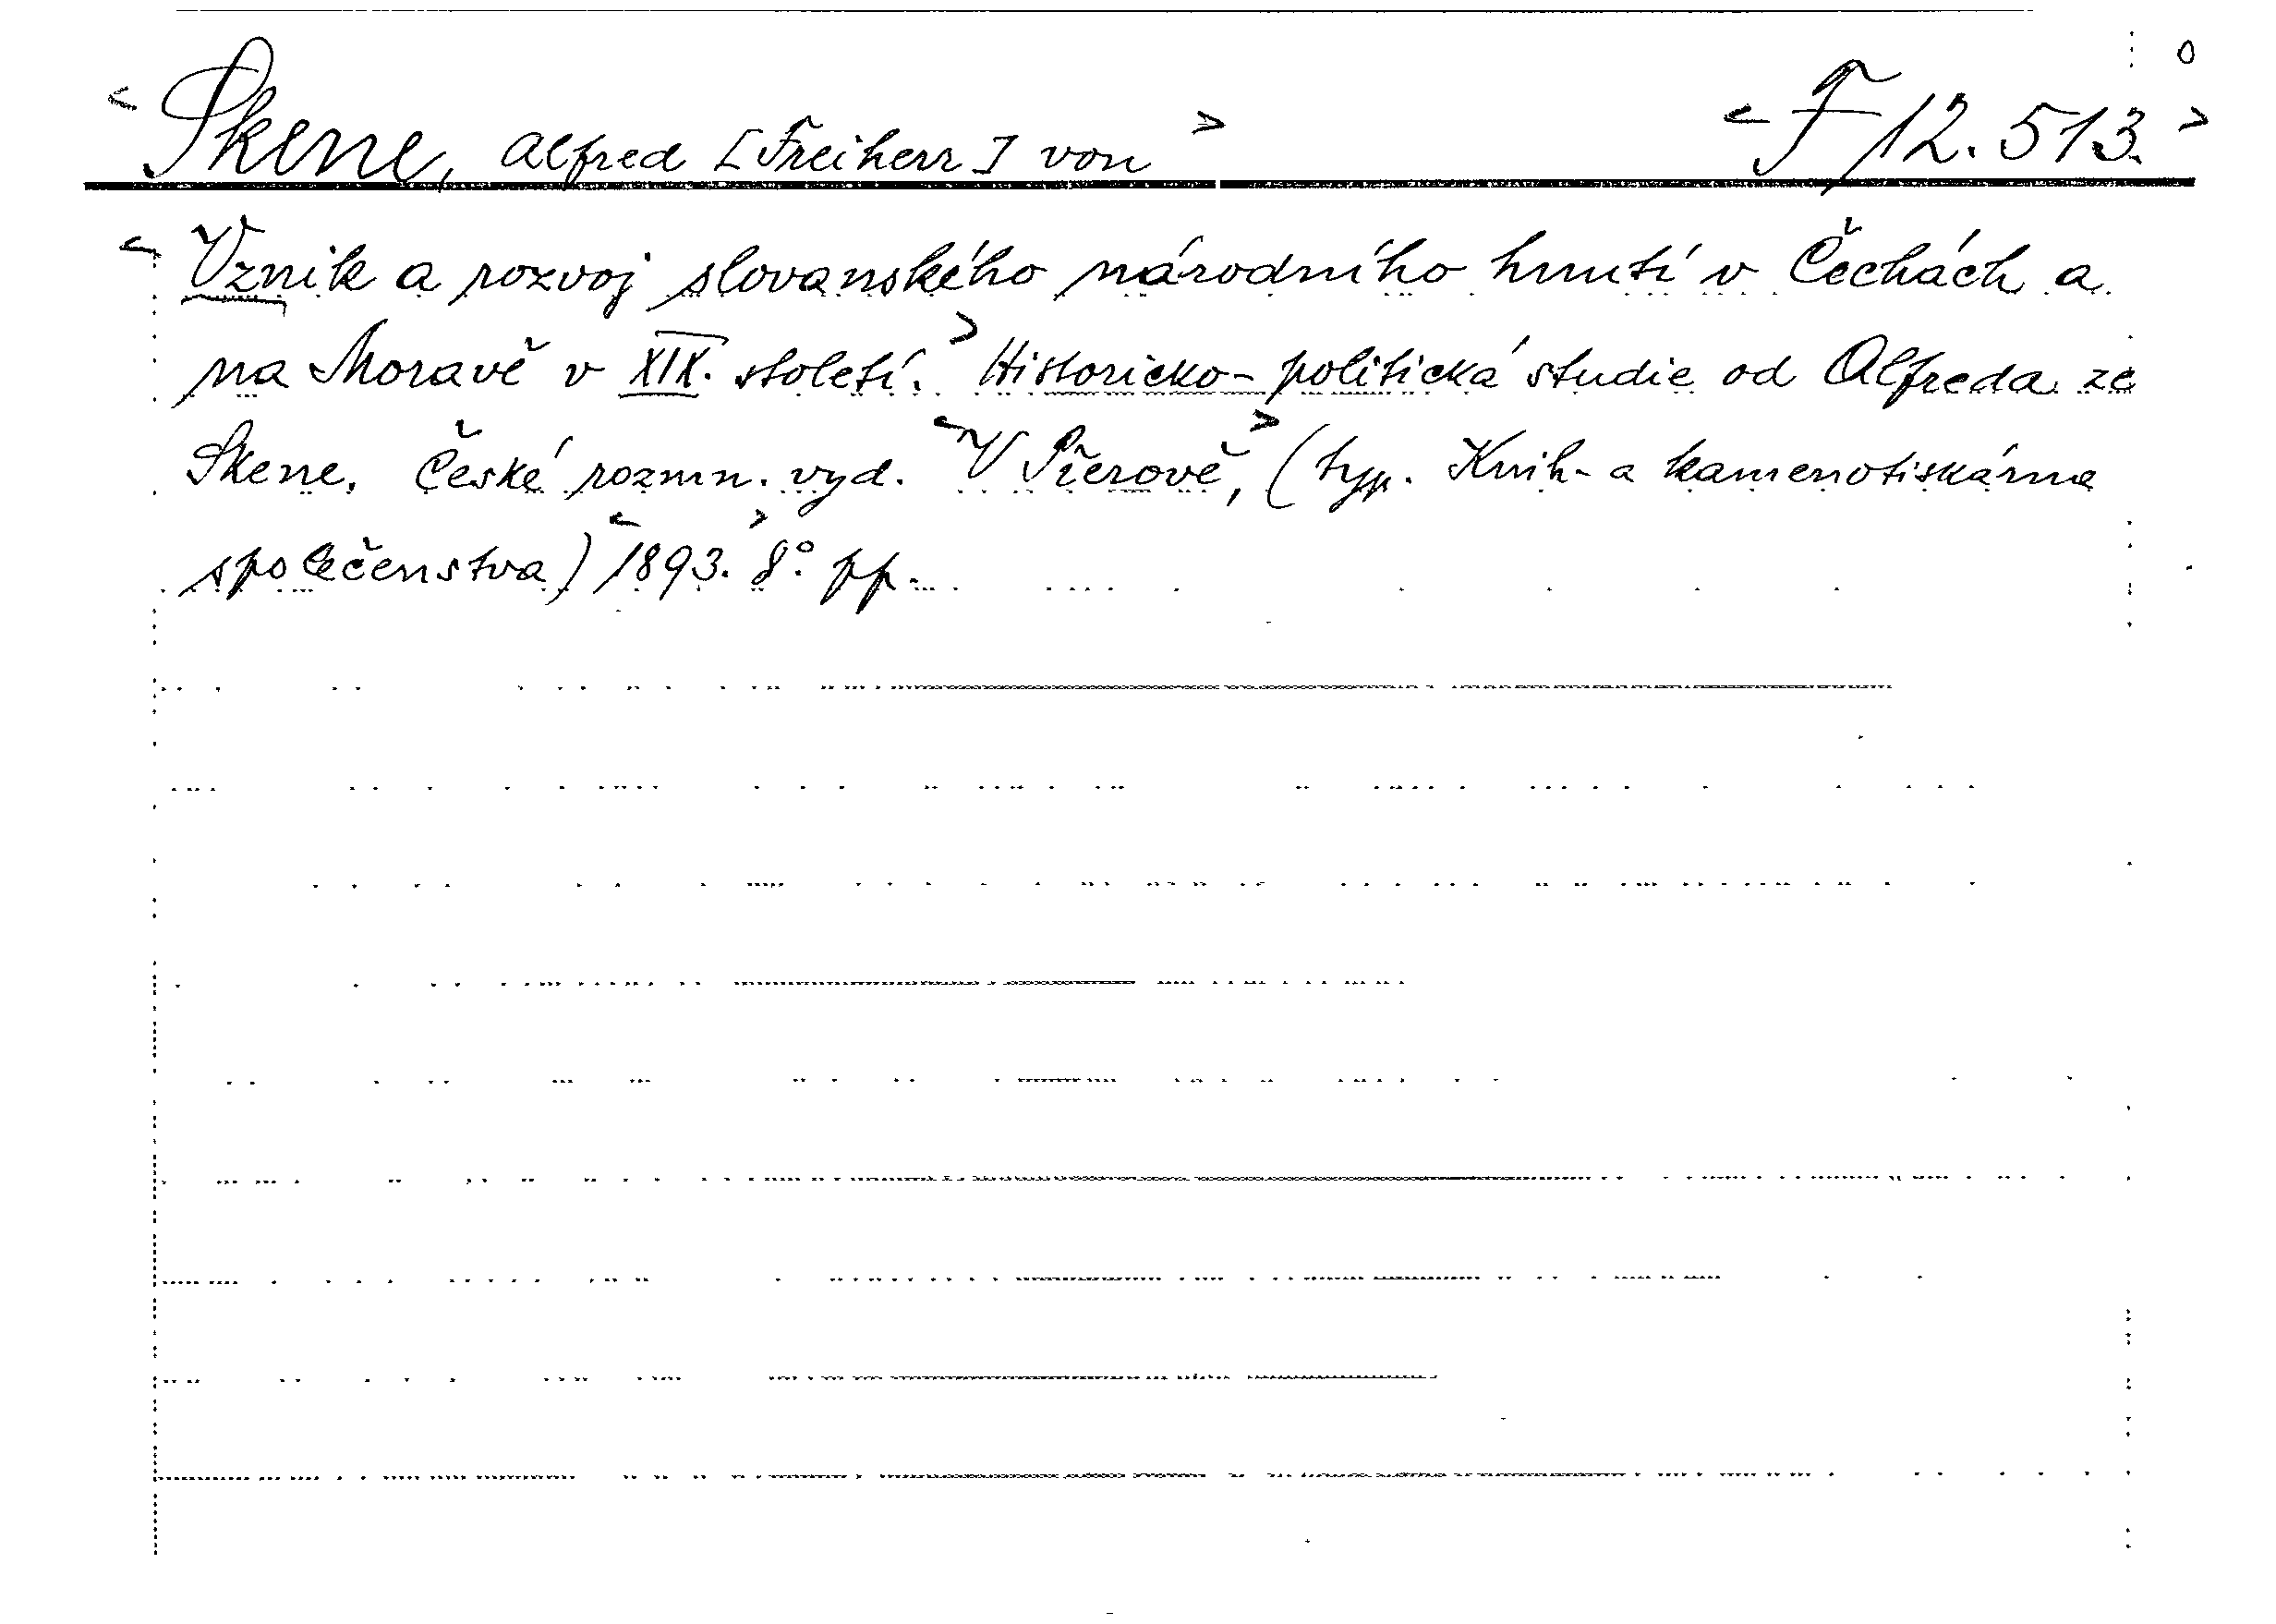 <Skene, Alfred [Freiherr] von> <F 12.513.>
<Vznik a rozvoj slovanského národního hnutí v Čechách a
na Moravě v XIX. století.> Historicko-politická studie od Alfreda ze
Skene. České rozmn. vyd. <V Přerově,> (typ. Knih- a kamenotiskárna
společenstva) <1893.> 8° pp.